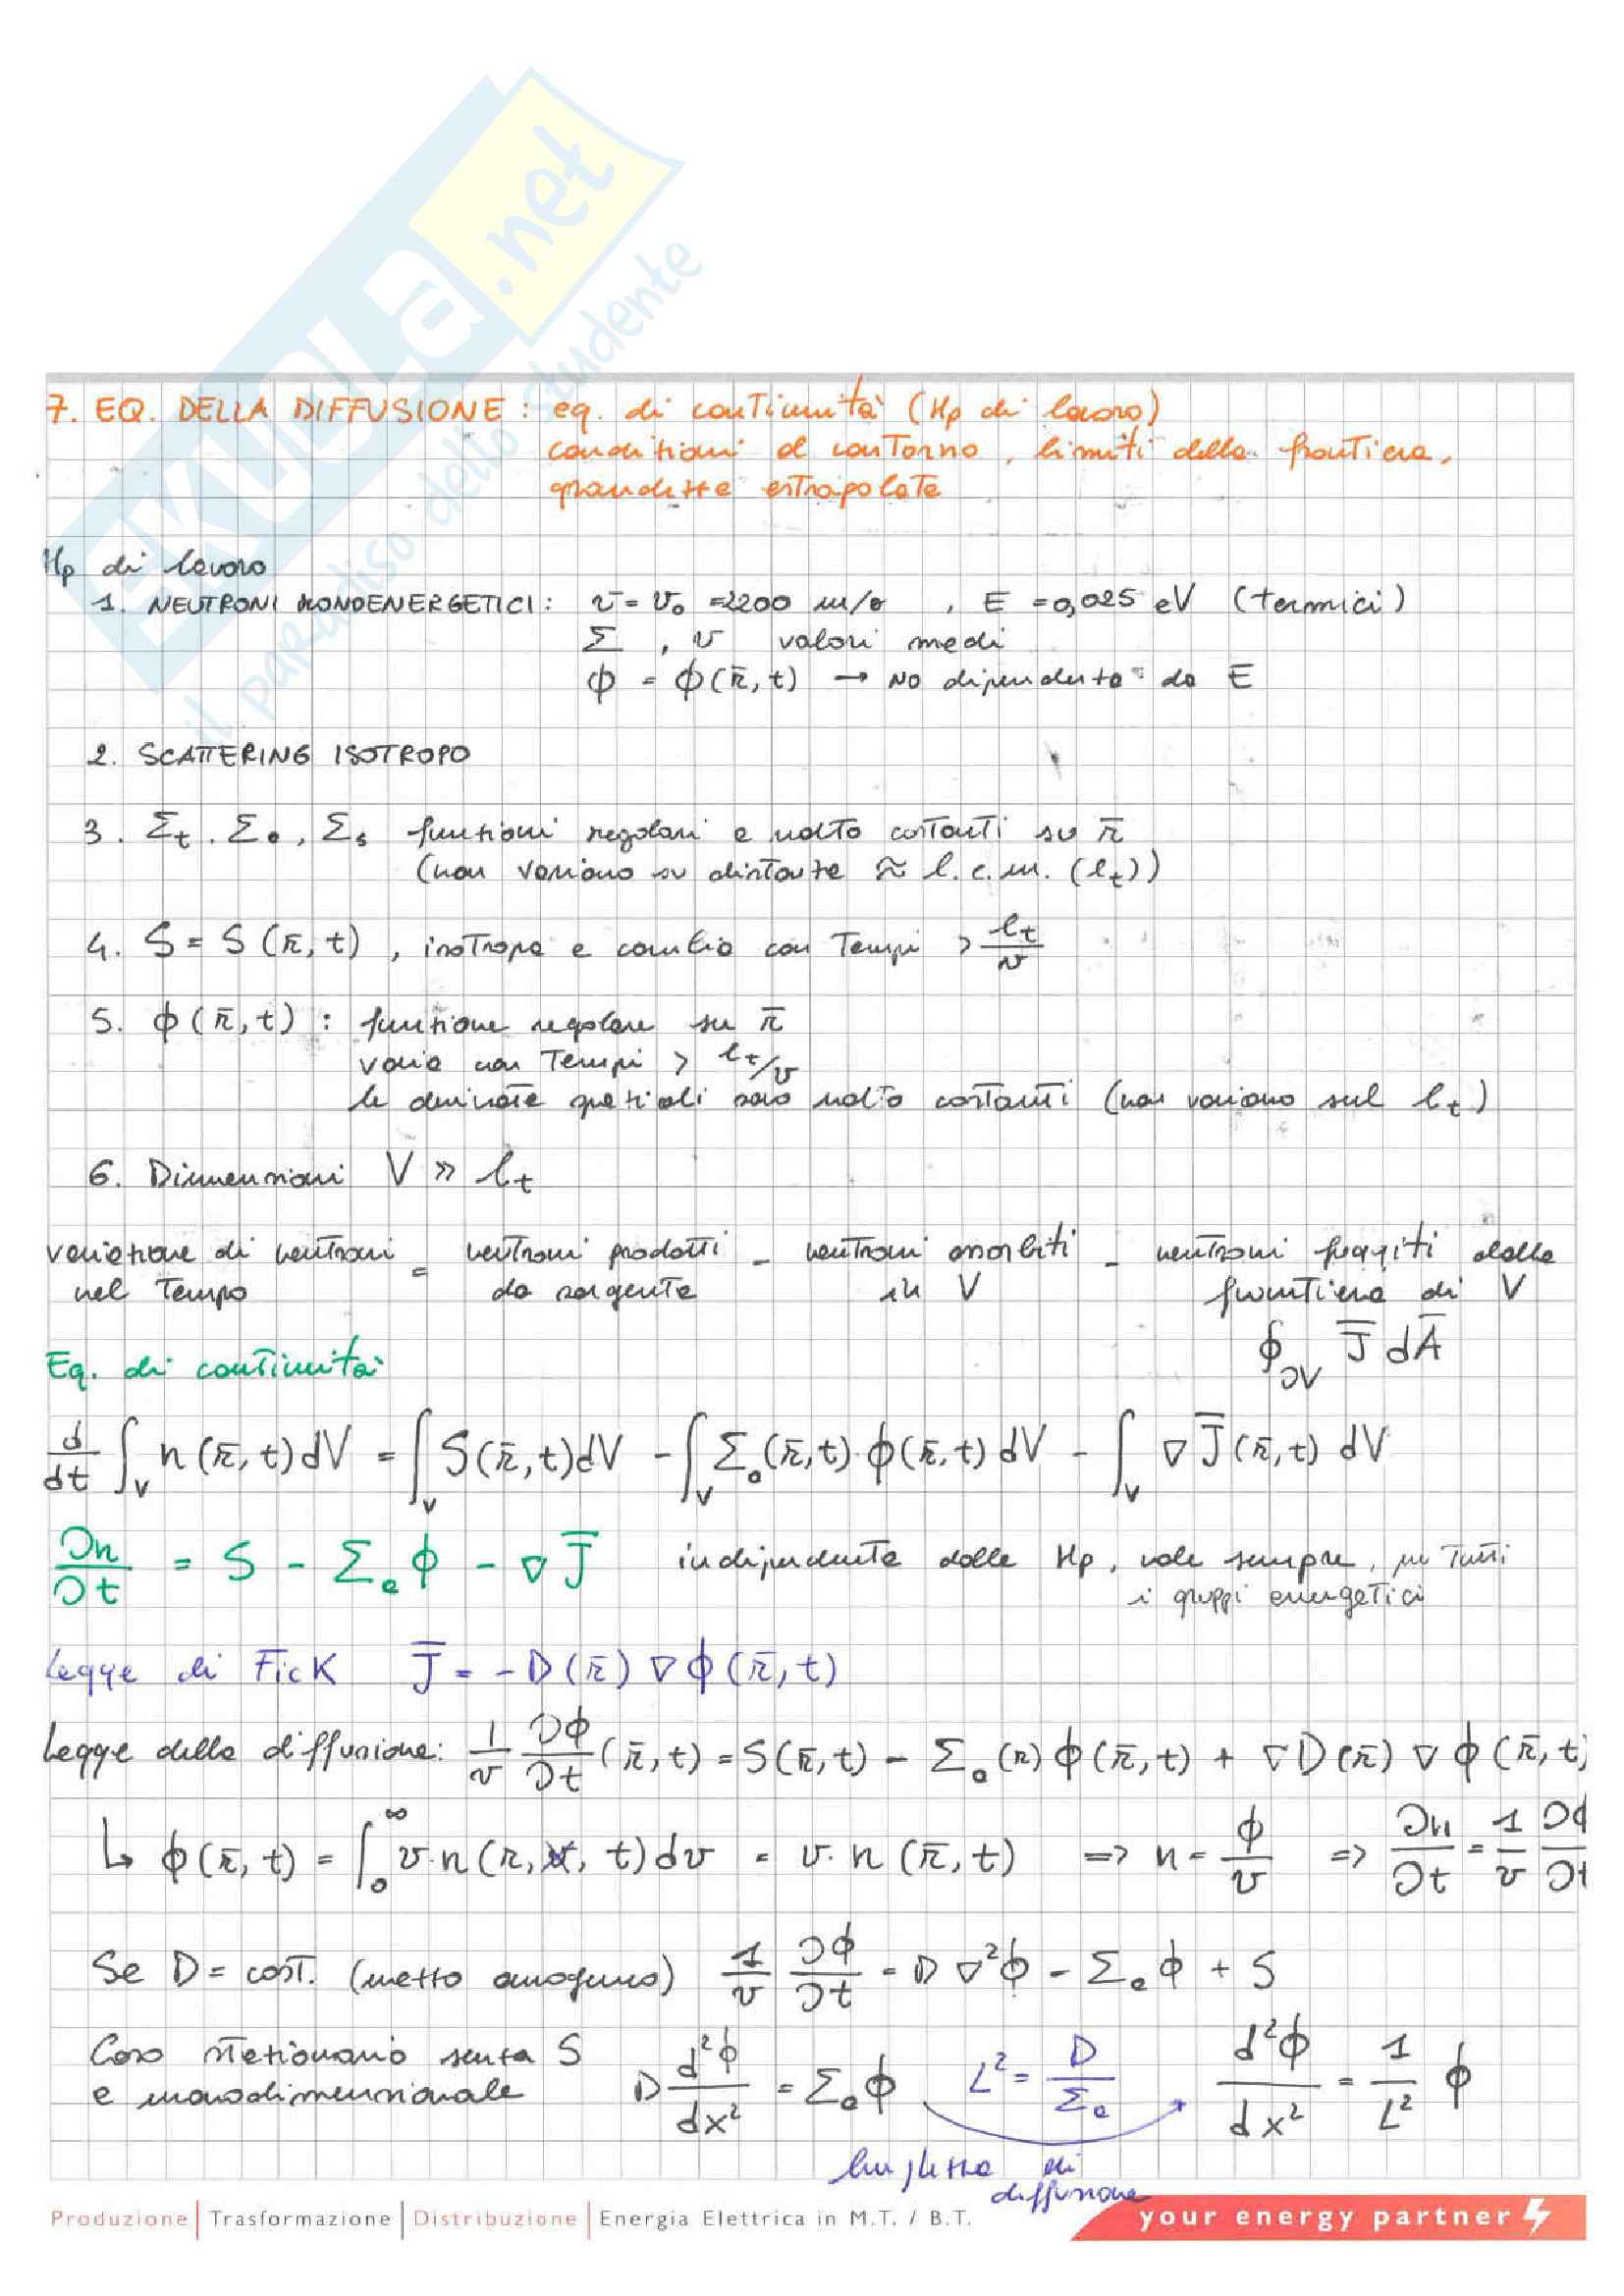 SKUOLA.net
il paradiso dello studente
7. EQ. DELLA DIFFUSIONE : eq. di continuità (Hp di lavoro)
condizioni al contorno, limiti della frontiera,
grandezze estrapolate
Hp di lavoro
1. NEUTRONI MONOENERGETICI : v = v₀ = 2200 m/s , E = 0,025 eV (termici)
Σ , v valori medi
ϕ = ϕ(r̄, t) → NO dipendenza da E
2. SCATTERING ISOTROPO
3. Σt, Σa, Σs funzioni regolari e molto costanti su r̄
(non variano su distanze ≈ l.c.m. (lt))
4. S = S(r̄, t) , isotropa e cambia con Tempi > lt/v
5. ϕ(r̄, t) : funzione regolare su r̄
varia con Tempi > lt/v
le derivate spaziali sono molto costanti (non variano sul lt)
6. Dimensioni V >> lt
variazione di neutroni = neutroni prodotti - neutroni assorbiti - neutroni fuggiti dalla
nel Tempo da sorgente in V frontiera di V
∮∂V J̄ dĀ
Eq. di continuità
d/dt ∫V n(r̄, t) dV = ∫V S(r̄, t) dV - ∫V Σa(r̄, t)·ϕ(r̄, t) dV - ∫V ∇J̄(r̄, t) dV
∂n/∂t = S - Σa ϕ - ∇J̄ indipendente dalle Hp, vale sempre, per Tutti
i gruppi energetici
Legge di Fick J̄ = -D(r̄) ∇ϕ(r̄, t)
Legge della diffusione: 1/v ∂ϕ/∂t (r̄, t) = S(r̄, t) - Σa(r) ϕ(r̄, t) + ∇D(r̄) ∇ϕ(r̄, t)
↳ ϕ(r̄, t) = ∫₀^∞ v·n(r, v, t) dv = v·n(r̄, t) => n = ϕ/v => ∂n/∂t = 1/v ∂ϕ/∂t
Se D = cost. (mezzo omogeneo) 1/v ∂ϕ/∂t = D ∇²ϕ - Σa ϕ + S
Caso stazionario senza S
e monodimensionale D d²ϕ/dx² = Σa ϕ L² = D/Σa d²ϕ/dx² = 1/L² ϕ
lunghezza di
diffusione
Produzione | Trasformazione | Distribuzione | Energia Elettrica in M.T. / B.T. your energy partner